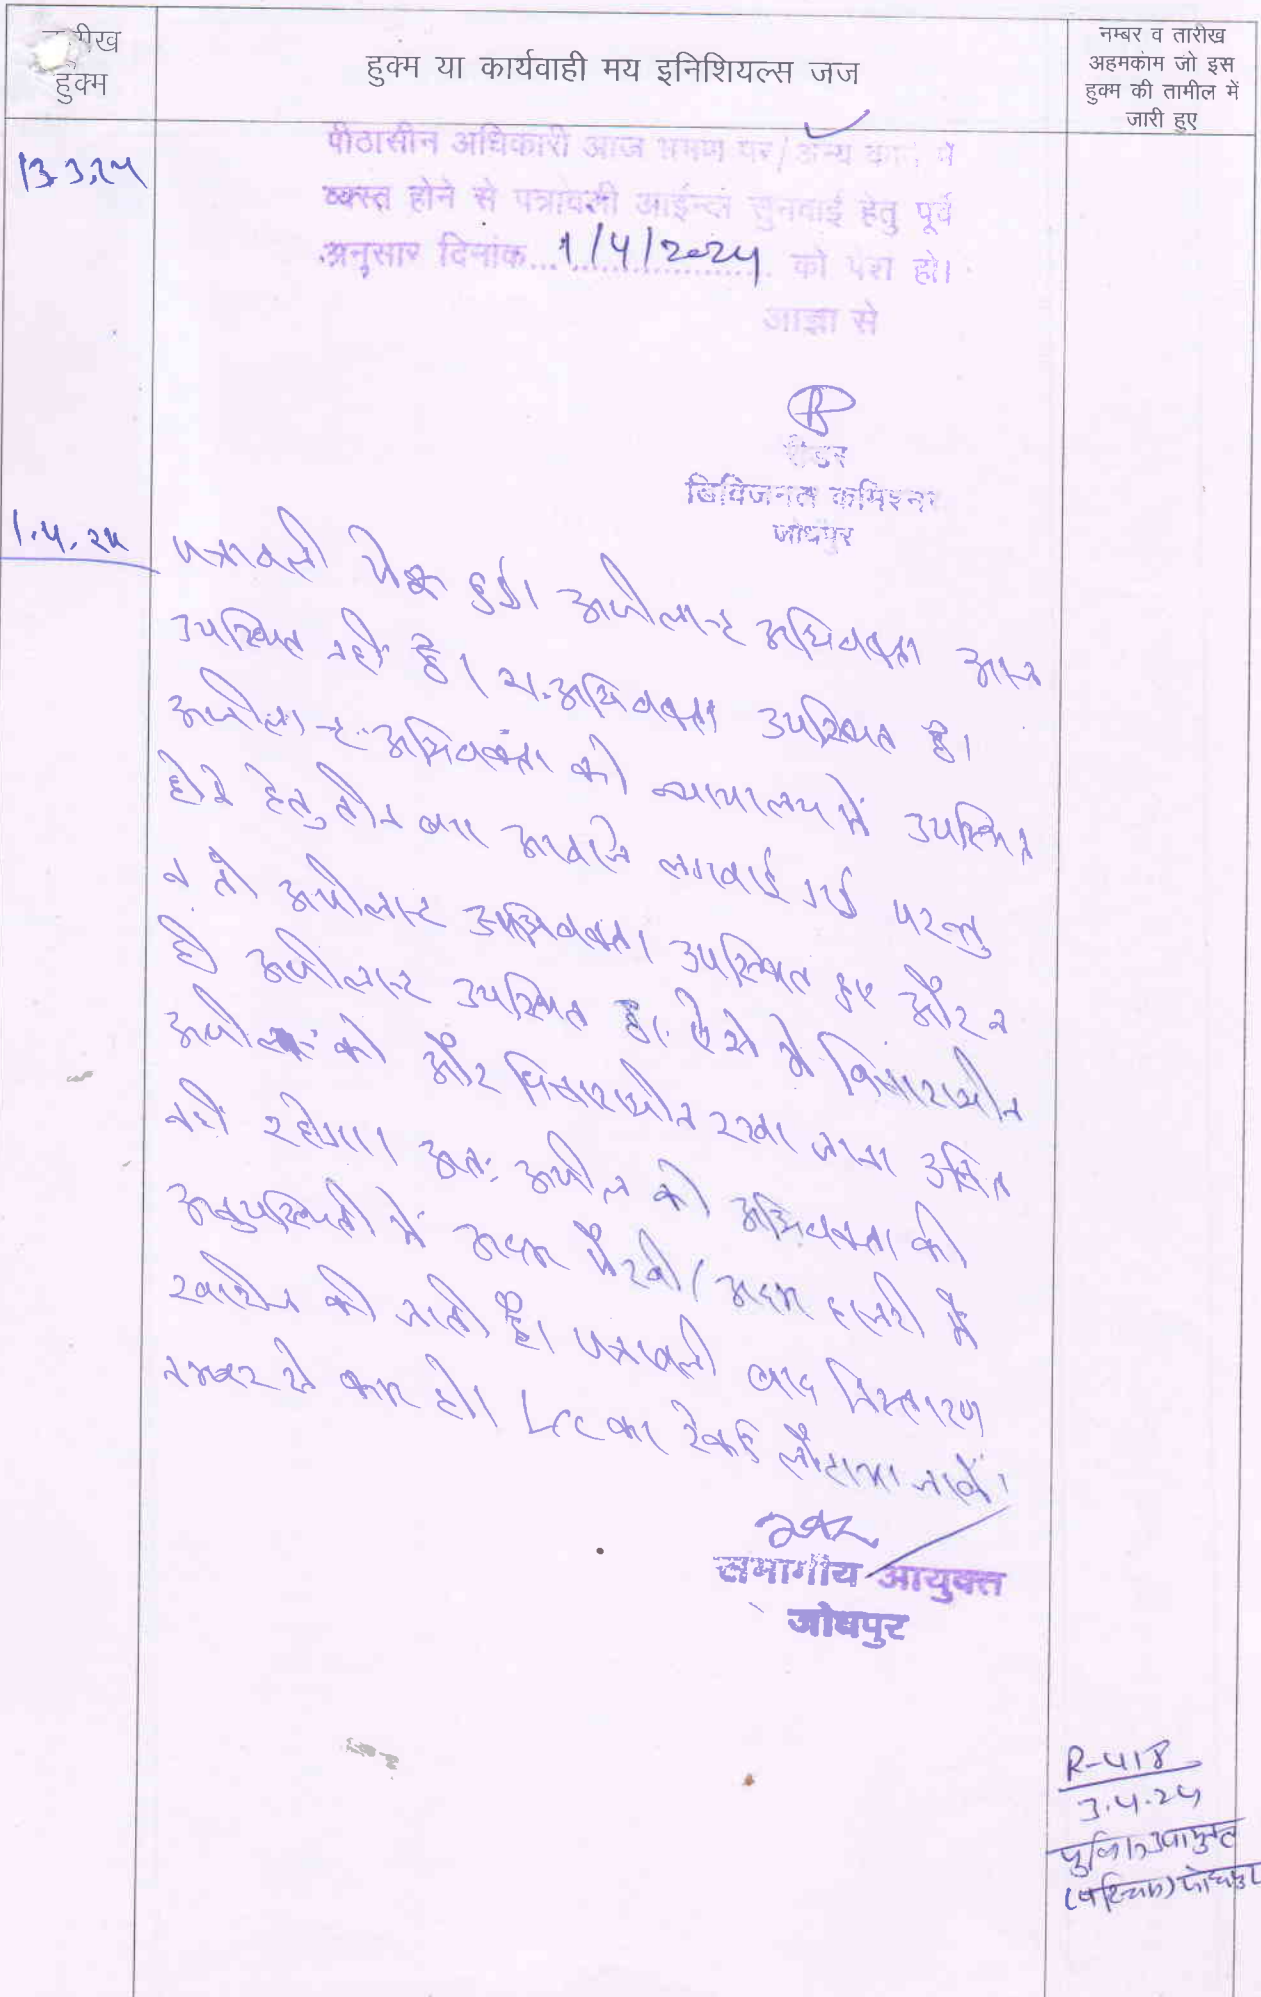 तारीख
हुक्म
हुक्म या कार्यवाही मय इनिशियल्स जज
नम्बर व तारीख
अहमकाम जो इस
हुक्म की तामील में
जारी हुए
13.3.24
पीठासीन अधिकारी आज भ्रमण पर/अन्य कार्य में
व्यस्त होने से पत्रावली आईन्दा सुनवाई हेतु पूर्व
अनुसार दिनांक....1/4/2024.... को पेश हो।
आज्ञा से
रीडर
डिविजनल कमिश्नर
जोधपुर
1.4.24
पत्रावली पेश हुई। अपीलान्ट अधिवक्ता आज
उपस्थित नहीं है। रा.अधिवक्ता उपस्थित है।
अपीलान्ट अधिवक्ता को न्यायालय में उपस्थित
होने हेतु तीन बार आवाजे लगवाई गई परन्तु
न तो अपीलान्ट अधिवक्ता उपस्थित हुए और न
ही अपीलान्ट उपस्थित है। ऐसे में विचाराधीन
अपील को और विचाराधीन रखा जाना उचित
नहीं रहेगा। अतः अपील को अधिवक्ता की
अनुपस्थिती में अदम पैरवी/अदम हाजरी में
खारीज की जाती है। पत्रावली बाद निस्तारण
नम्बर से कम हो। LCC का रेकर्ड लौटाया जावें।
संभागीय आयुक्त
जोधपुर
R-418
3.4.24
पुलिस उपायुक्त
(पश्चिम) जोधपुर